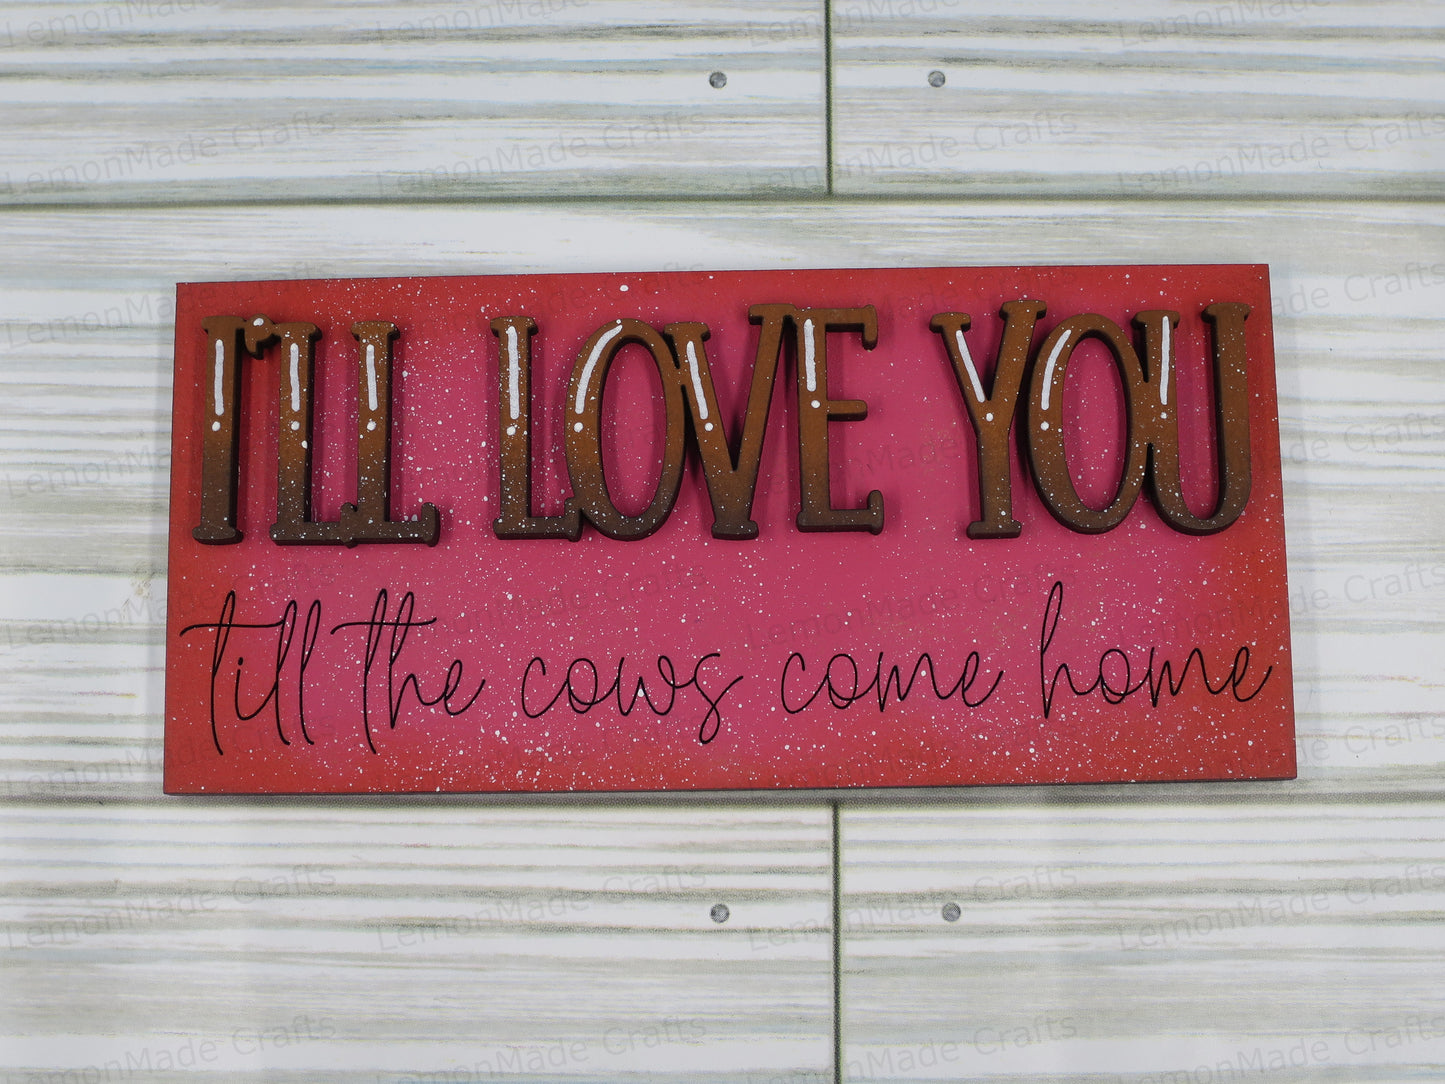 I'LL LOVE YOU
till the cows come home
LemonMade Crafts